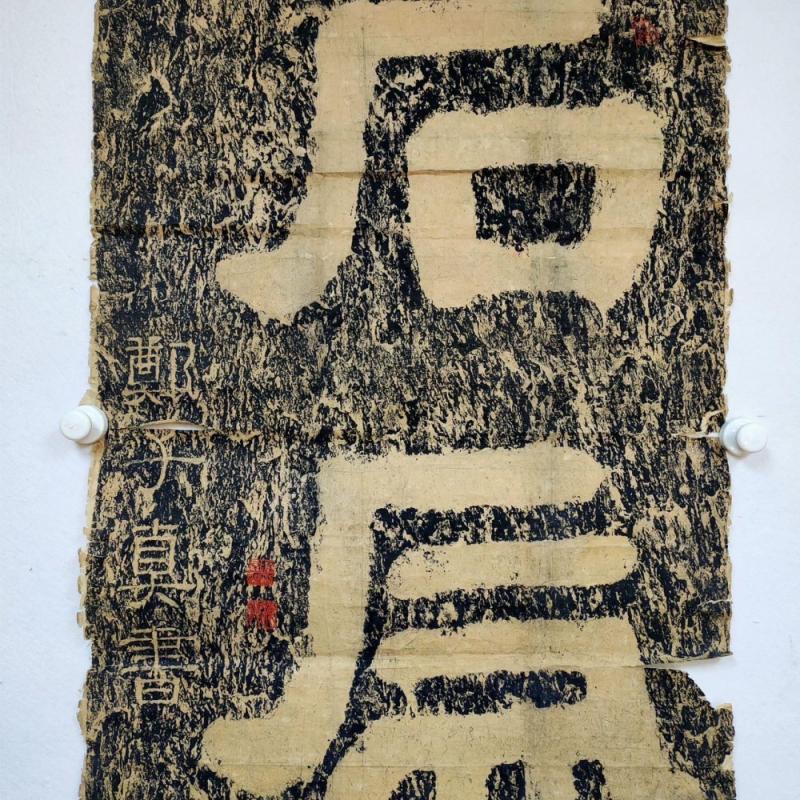 石虎
鄭子真書